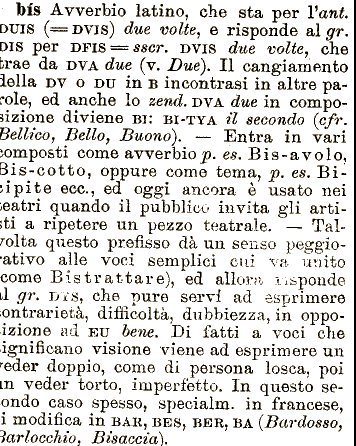 bis Avverbio latino, che sta per l'ant.
DUIS (= DVIS) due volte, e risponde al gr.
DIS per DFIS = sscr. DVIS due volte, che
trae da DVA due (v. Due). Il cangiamento
della DV o DU in B incontrasi in altre pa-
role, ed anche lo zend. DVA due in compo-
sizione diviene BI: BI-TYA il secondo (cfr.
Bellico, Bello, Buono). — Entra in vari
composti come avverbio p. es. Bis-avolo,
Bis-cotto, oppure come tema, p. es. Bi-
cipite ecc., ed oggi ancora è usato nei
teatri quando il pubblico invita gli arti-
sti a ripetere un pezzo teatrale. — Tal-
volta questo prefisso dà un senso peggio-
rativo alle voci semplici cui va unito
(come Bistrattare), ed allora risponde
al gr. DYS, che pure servì ad esprimere
contrarietà, difficoltà, dubbiezza, in oppo-
sizione ad EU bene. Di fatti a voci che
significano visione viene ad esprimere un
veder doppio, come di persona losca, poi
un veder torto, imperfetto. In questo se-
condo caso spesso, specialm. in francese,
si modifica in BAR, BES, BER, BA (Bardosso,
Barlocchio, Bisaccia).